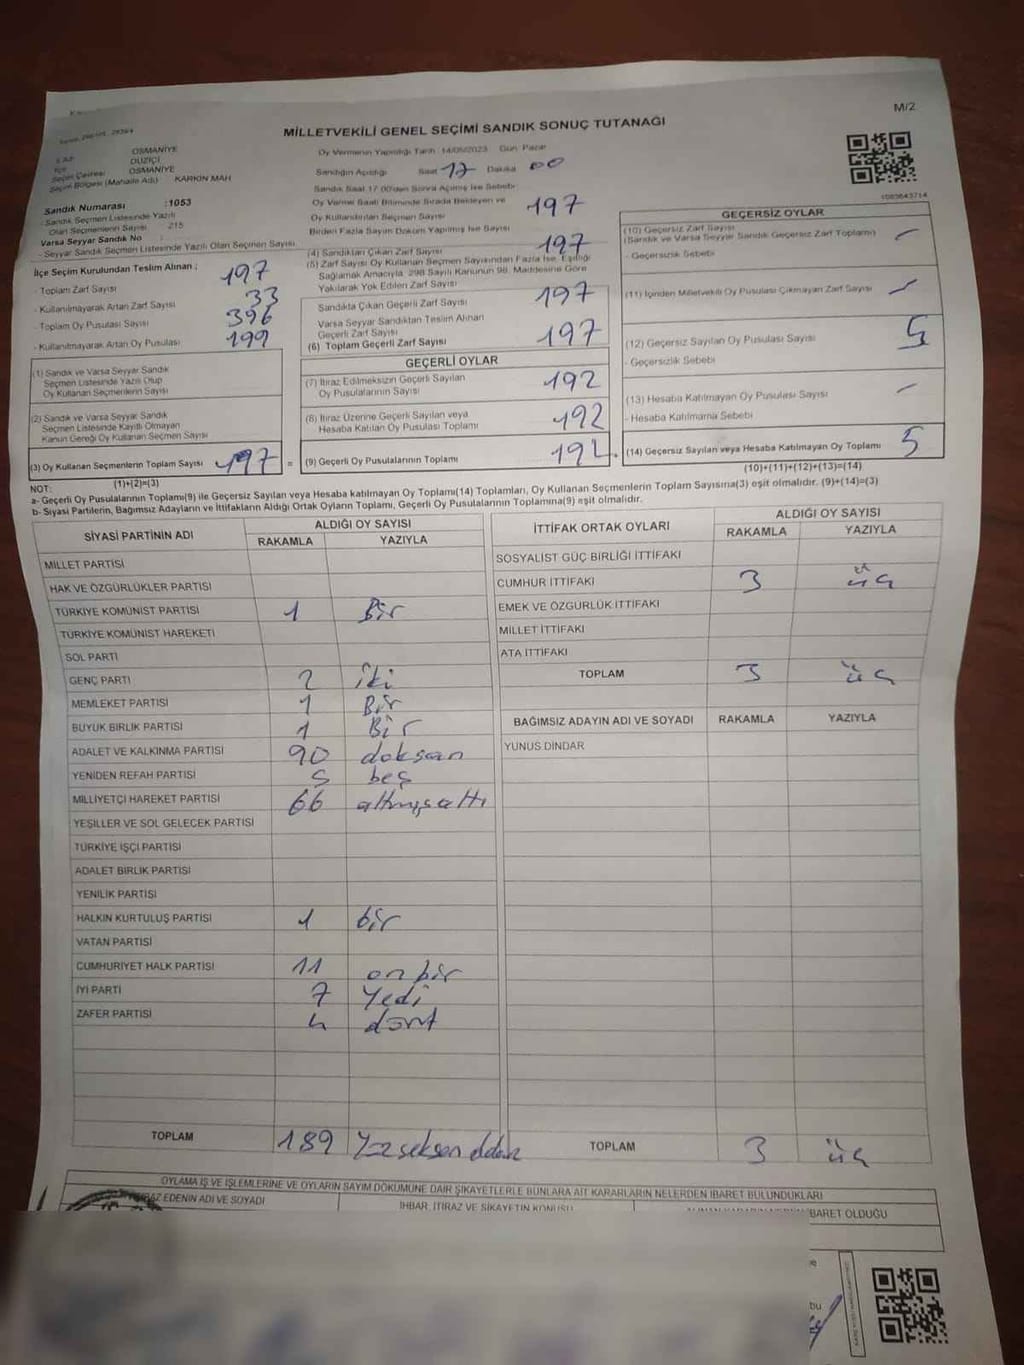 M/2
MİLLETVEKİLİ GENEL SEÇİMİ SANDIK SONUÇ TUTANAĞI
OSMANİYE
İlçe DÜZİÇİ
Seçim Çevresi OSMANİYE
Seçim Bölgesi (Mahalle Adı) KARKIN MAH
Sandık Numarası :1053
- Sandık Seçmen Listesinde Yazılı
Olan Seçmenlerin Sayısı : 215
Varsa Seyyar Sandık No :
- Seyyar Sandık Seçmen Listesinde Yazılı Olan Seçmen Sayısı
İlçe Seçim Kurulundan Teslim Alınan :
- Toplam Zarf Sayısı 197
- Kullanılmayarak Artan Zarf Sayısı 33
- Toplam Oy Pusulası Sayısı 396
- Kullanılmayarak Artan Oy Pusulası 199
(1) Sandık ve Varsa Seyyar Sandık
Seçmen Listesinde Yazılı Olup
Oy Kullanan Seçmen Sayısı
(2) Sandık ve Varsa Seyyar Sandık
Seçmen Listesinde Kayıtlı Olmayan
Kanun Gereği Oy Kullanan Seçmen Sayısı
(3) Oy Kullanan Seçmenlerin Toplam Sayısı 197 =
(1)+(2)=(3)
Oy Vermenin Yapıldığı Tarih : 14/05/2023 Gün : Pazar
Sandığın Açıldığı Saat 17 Dakika 00
Sandık Saat 17.00'den Sonra Açılmış İse Sebebi
Oy Verme Saati Bitiminde Sırada Bekleyen ve
Oy Kullandırılan Seçmen Sayısı 197
Birden Fazla Sayım Döküm Yapılmış İse Sayısı
(4) Sandıktan Çıkan Zarf Sayısı 197
(5) Zarf Sayısı Oy Kullanan Seçmen Sayısından Fazla İse, Eşitliği
Sağlamak Amacıyla, 298 Sayılı Kanunun 98. Maddesine Göre
Yakılarak Yok Edilen Zarf Sayısı
Sandıkta Çıkan Geçerli Zarf Sayısı 197
Varsa Seyyar Sandıktan Teslim Alınan
Geçerli Zarf Sayısı
(6) Toplam Geçerli Zarf Sayısı 197
GEÇERLİ OYLAR
(7) İtiraz Edilmeksizin Geçerli Sayılan
Oy Pusulalarının Sayısı 192
(8) İtiraz Üzerine Geçerli Sayılan veya
Hesaba Katılan Oy Pusulası Toplamı 192
(9) Geçerli Oy Pusulalarının Toplamı 192 +
1083643714
GEÇERSİZ OYLAR
(10) Geçersiz Zarf Sayısı
(Sandık ve Varsa Seyyar Sandık Geçersiz Zarf Toplamı) -
- Geçersizlik Sebebi
(11) İçinden Milletvekili Oy Pusulası Çıkmayan Zarf Sayısı -
(12) Geçersiz Sayılan Oy Pusulası Sayısı 5
- Geçersizlik Sebebi
(13) Hesaba Katılmayan Oy Pusulası Sayısı -
- Hesaba Katılmama Sebebi
(14) Geçersiz Sayılan veya Hesaba Katılmayan Oy Toplamı 5
(10)+(11)+(12)+(13)=(14)
NOT:
a- Geçerli Oy Pusulalarının Toplamı(9) ile Geçersiz Sayılan veya Hesaba katılmayan Oy Toplamı(14) Toplamları, Oy Kullanan Seçmenlerin Toplam Sayısına(3) eşit olmalıdır. (9)+(14)=(3)
b- Siyasi Partilerin, Bağımsız Adayların ve İttifakların Aldığı Ortak Oyların Toplamı, Geçerli Oy Pusulalarının Toplamına(9) eşit olmalıdır.
SİYASİ PARTİNİN ADI ALDIĞI OY SAYISI
RAKAMLA YAZIYLA
MİLLET PARTİSİ
HAK VE ÖZGÜRLÜKLER PARTİSİ
TÜRKİYE KOMÜNİST PARTİSİ 1 Bir
TÜRKİYE KOMÜNİST HAREKETİ
SOL PARTİ
GENÇ PARTİ 2 iki
MEMLEKET PARTİSİ 1 Bir
BÜYÜK BİRLİK PARTİSİ 1 Bir
ADALET VE KALKINMA PARTİSİ 90 doksan
YENİDEN REFAH PARTİSİ 5 beş
MİLLİYETÇİ HAREKET PARTİSİ 66 altmışaltı
YEŞİLLER VE SOL GELECEK PARTİSİ
TÜRKİYE İŞÇİ PARTİSİ
ADALET BİRLİK PARTİSİ
YENİLİK PARTİSİ
HALKIN KURTULUŞ PARTİSİ 1 bir
VATAN PARTİSİ
CUMHURİYET HALK PARTİSİ 11 on bir
İYİ PARTİ 7 Yedi
ZAFER PARTİSİ 4 dört
TOPLAM 189
İTTİFAK ORTAK OYLARI ALDIĞI OY SAYISI
RAKAMLA YAZIYLA
SOSYALİST GÜÇ BİRLİĞİ İTTİFAKI
CUMHUR İTTİFAKI 3 üç
EMEK VE ÖZGÜRLÜK İTTİFAKI
MİLLET İTTİFAKI
ATA İTTİFAKI
TOPLAM 3 üç
BAĞIMSIZ ADAYIN ADI VE SOYADI RAKAMLA YAZIYLA
YUNUS DİNDAR
TOPLAM 3 üç
OYLAMA İŞ VE İŞLEMLERİNE VE OYLARIN SAYIM DÖKÜMÜNE DAİR ŞİKAYETLERLE BUNLARA AİT KARARLARIN NELERDEN İBARET BULUNDUKLARI
EDENİN ADI VE SOYADI İHBAR, İTİRAZ VE ŞİKAYETİN KONUSU İBARET OLDUĞU